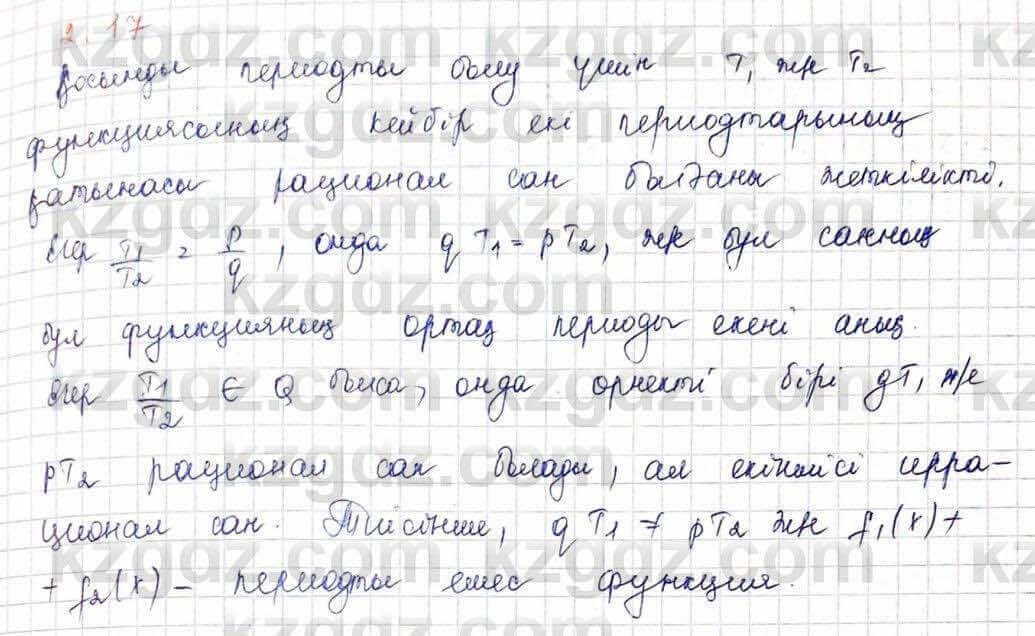 2.17
Қосынды периодты болу үшін T₁ және T₂
функциясының кейбір екі периодтарының
қатынасы рационал сан болғаны жеткілікті.
Егер T₁/T₂ = p/q, онда q T₁ = pT₂, және бұл санның
бұл функцияның ортақ периоды екені анық.
Егер T₁/T₂ ∈ Q болса, онда өрнекті бірі qT₁ және
pT₂ рационал сан болады, ал екіншісі ирра-
ционал сан. Тиісінше, q T₁ ≠ pT₂ және f₁(x) +
+ f₂(x) – периодты емес функция.
kzgdz.com